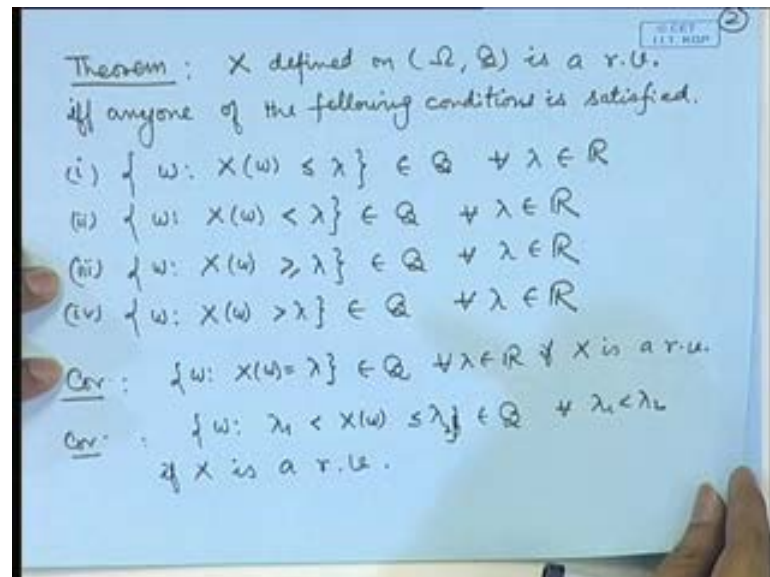 © CET
I.I.T. KGP
2
Theorem : X defined on (Ω, 𝔅) is a r.v.
iff anyone of the following conditions is satisfied.
(i) { ω: X(ω) ≤ λ} ∈ 𝔅 ∀ λ ∈ ℝ
(ii) { ω: X(ω) < λ} ∈ 𝔅 ∀ λ ∈ ℝ
(iii) { ω: X(ω) ≥ λ} ∈ 𝔅 ∀ λ ∈ ℝ
(iv) { ω: X(ω) > λ} ∈ 𝔅 ∀ λ ∈ ℝ
Cor : {ω: X(ω) = λ} ∈ 𝔅 ∀ λ ∈ ℝ if X is a r.v.
Cor : {ω: λ₁ < X(ω) ≤ λ₂} ∈ 𝔅 ∀ λ₁ < λ₂
if X is a r.v.